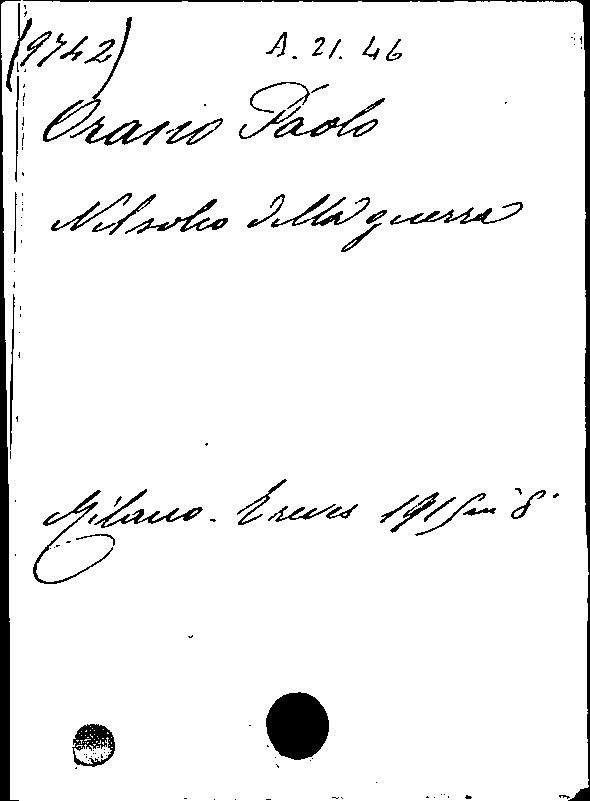 (9742) A. 21. 46
Orano Paolo
Nel solco della guerra
Milano. Treves 1915 in 8°